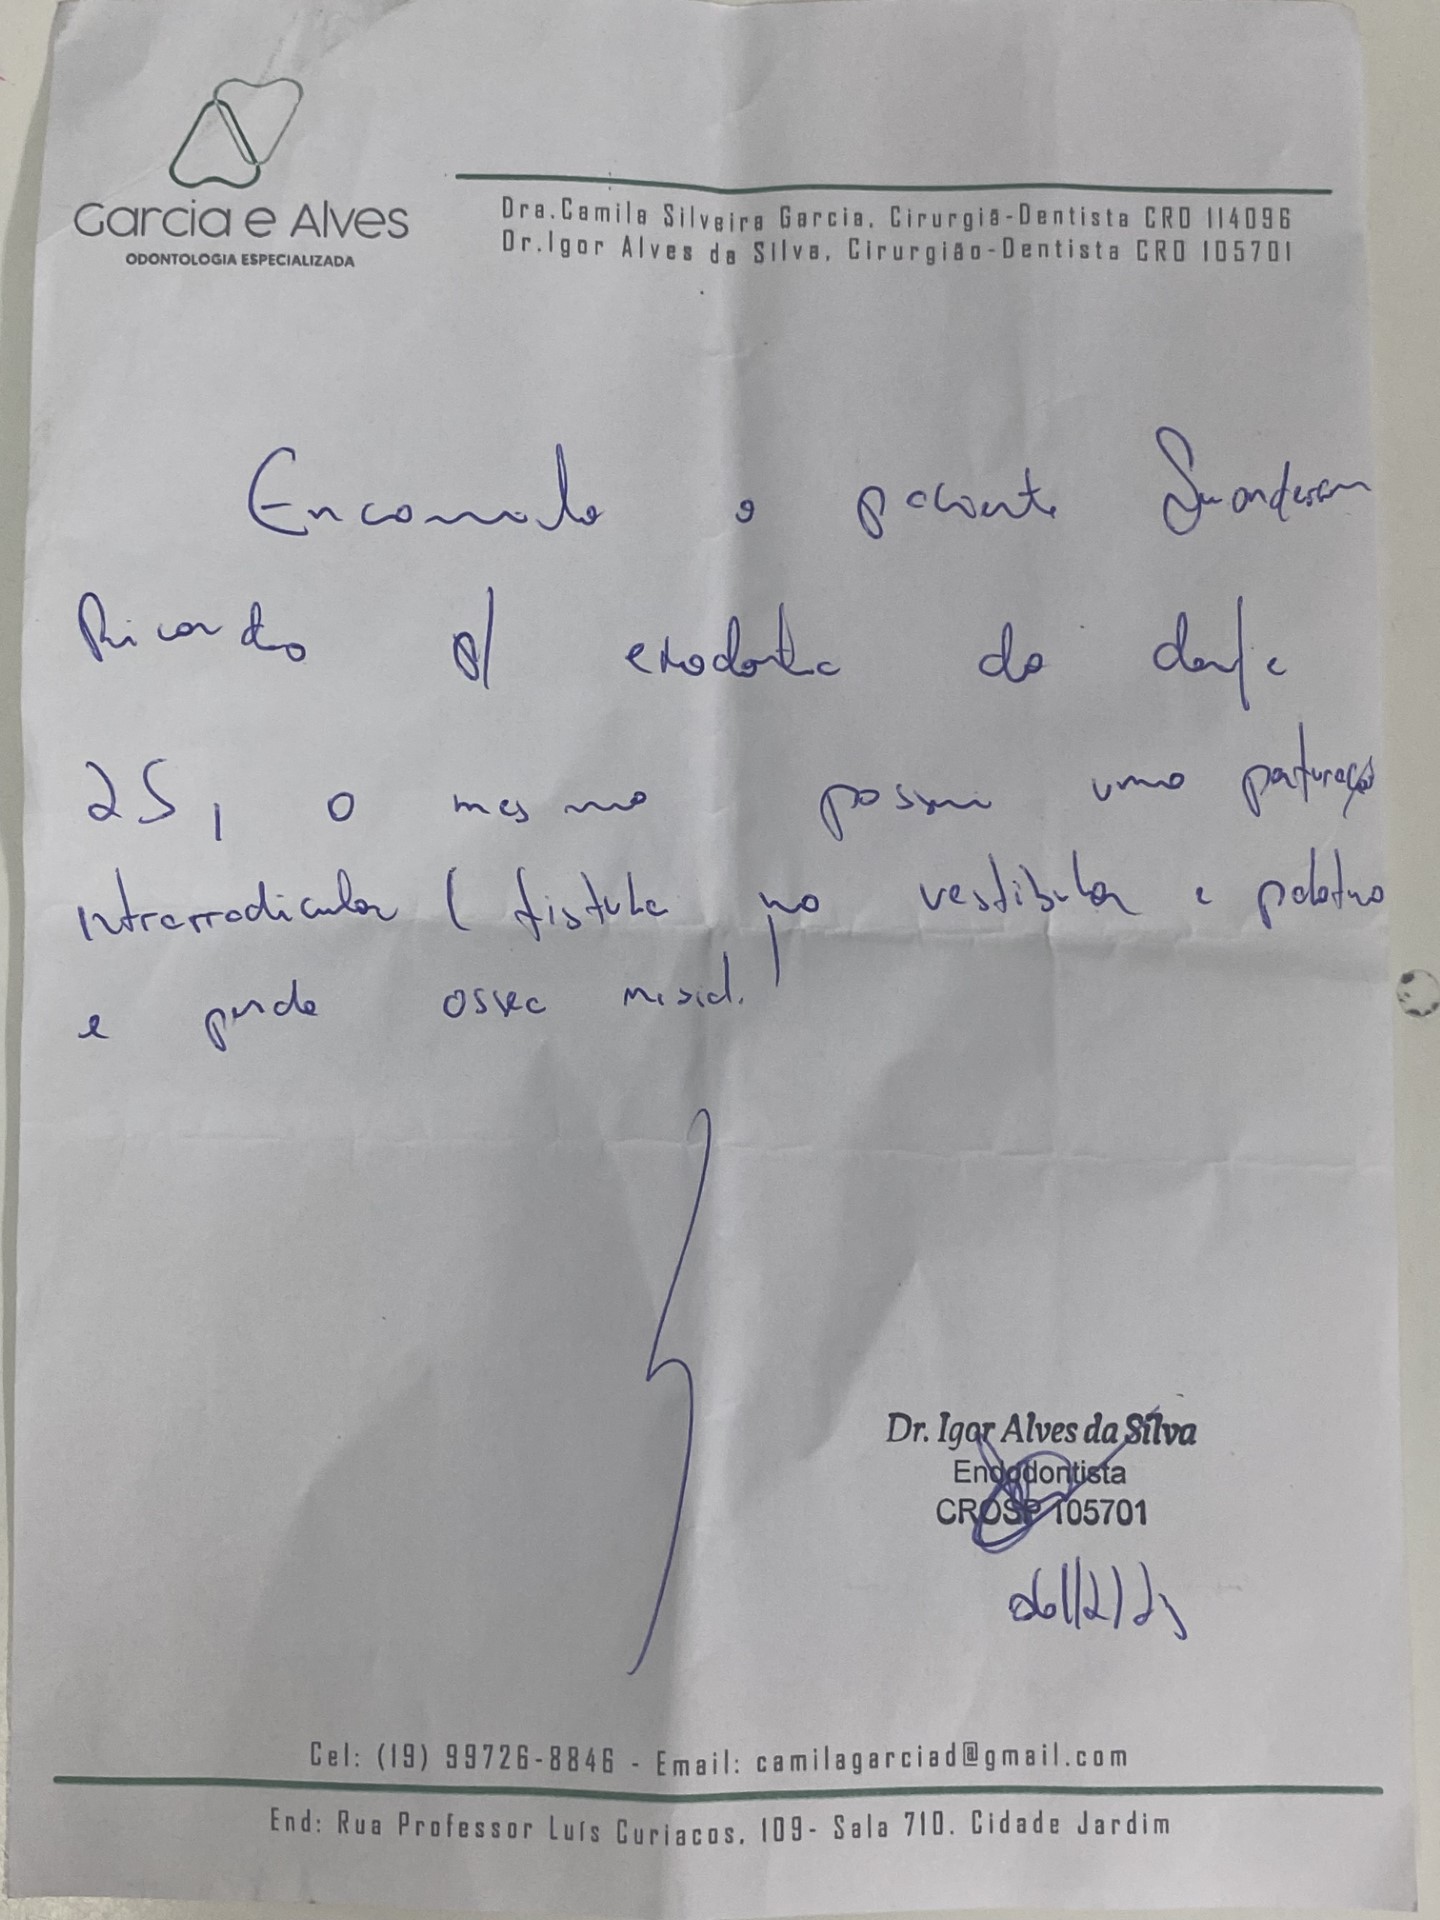 Garcia e Alves
ODONTOLOGIA ESPECIALIZADA
Dra.Camila Silveira Garcia, Cirurgiã-Dentista CRO 114096
Dr.Igor Alves da Silva, Cirurgião-Dentista CRO 105701
Encaminho o paciente
Ricardo p/ exodontia do dente
25, o mesmo possui uma perfuração
intrarradicular (fistula no vestibular e palatino
e perda ossea mesial.)
Dr. Igor Alves da Silva
Endodontista
CROSP 105701
Cel: (19) 99726-8846 - Email: camilagarciad@gmail.com
End: Rua Professor Luís Curiacos, 109- Sala 710. Cidade Jardim